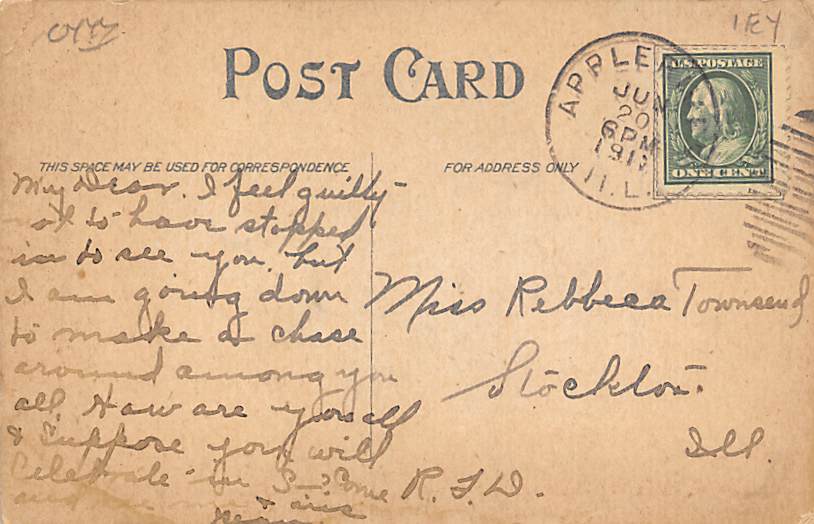 POST CARD
THIS SPACE MAY BE USED FOR CORRESPONDENCE
FOR ADDRESS ONLY
APPLE
JUN
20
6 PM
191
ILL.
U.S. POSTAGE
ONE CENT
My Dear. I feel guilty
not to have stopped
in to see you, but
I am going down
to make a chase
around among you
all. How are you all
I suppose you will
Celebrate in S—? Come
and see me
Miss Rebbeca Townsend
Stockton.
Ill.
R. F. D.